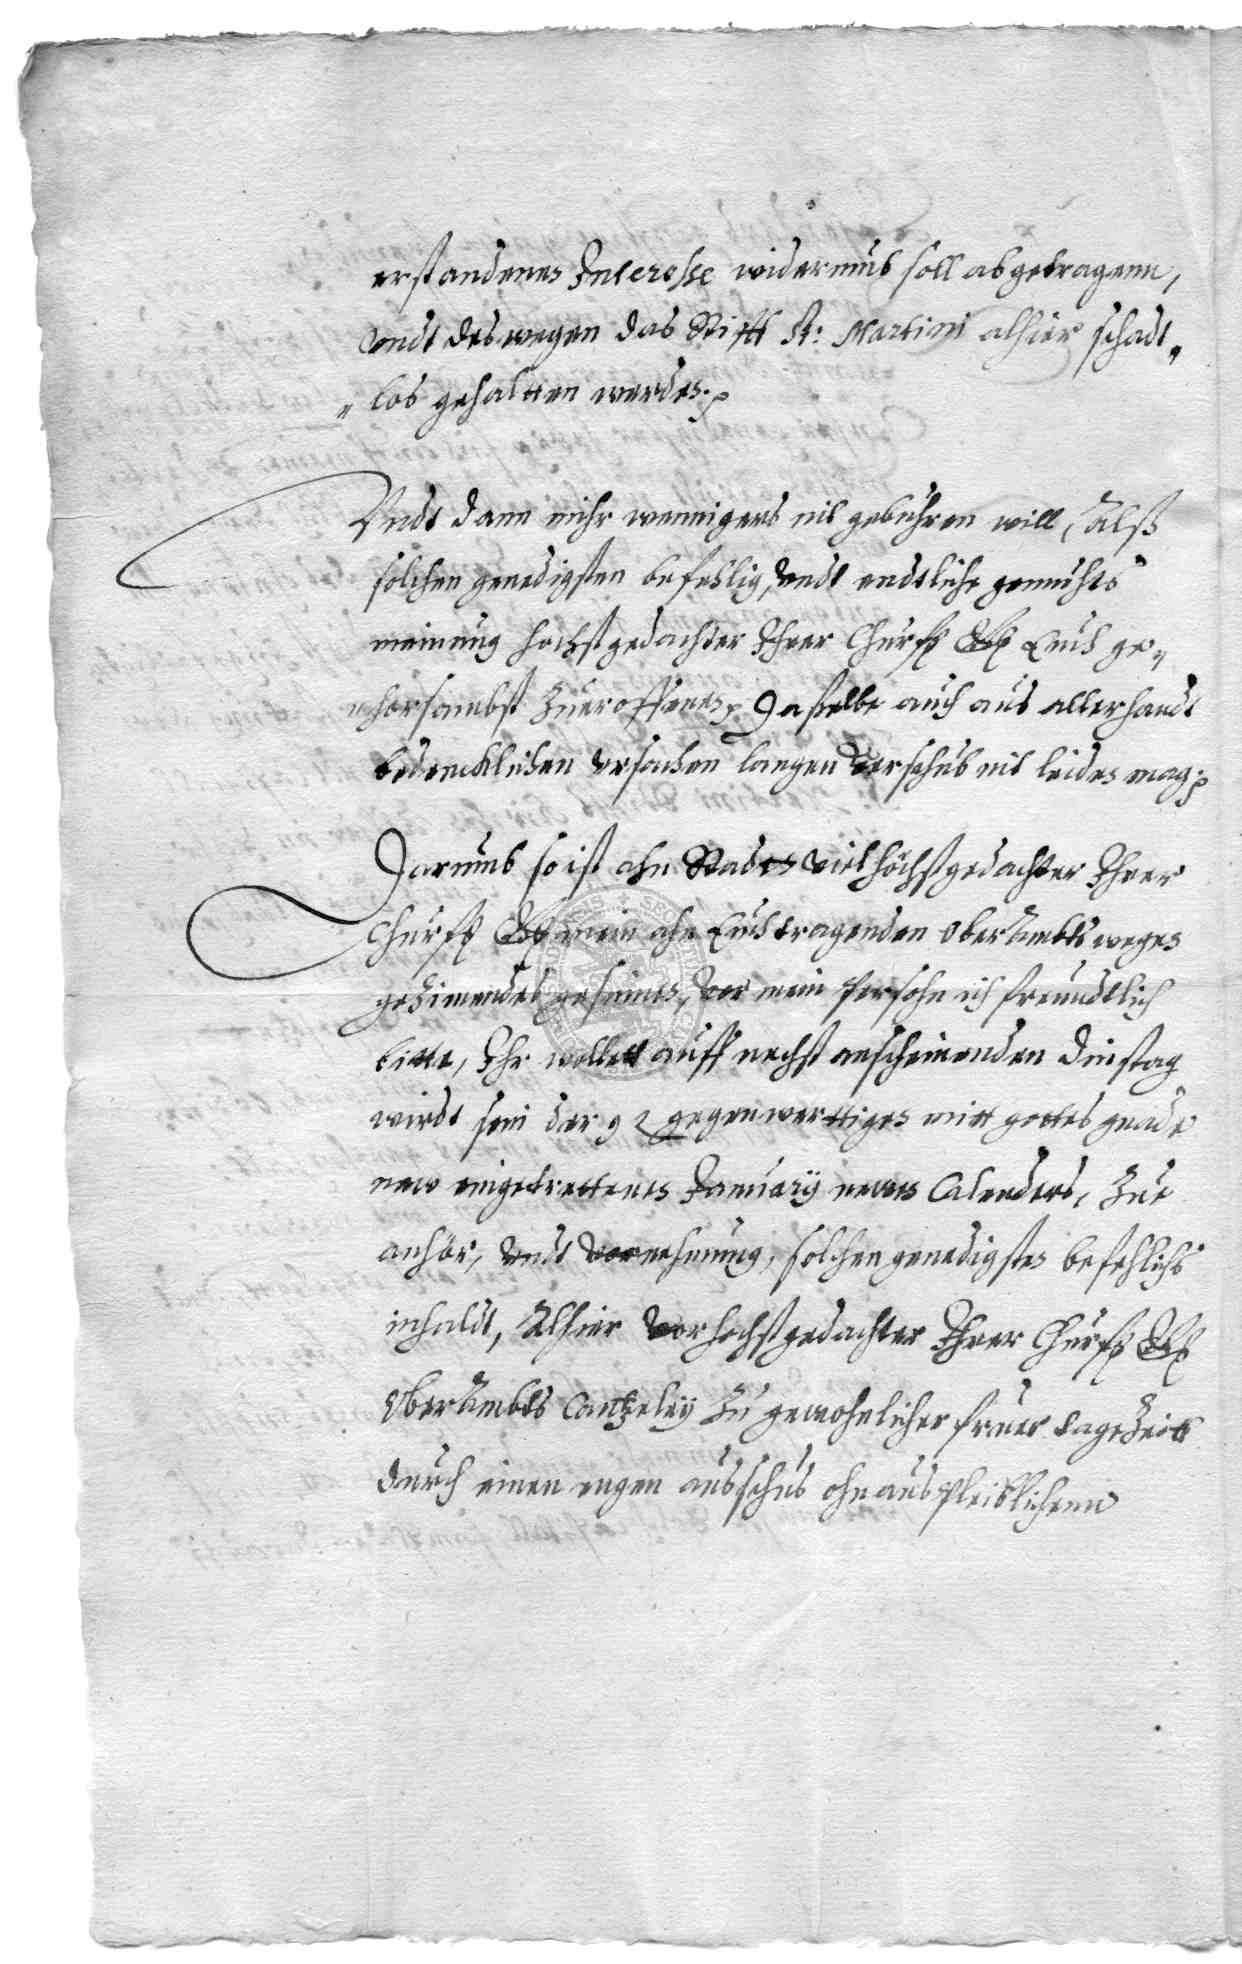 erstandenes Interesse widerumb soll abgetragenn,
vndt deswegen das Stifft St: Martini alhier schadt„
„los gehaltten werden.
Vndt dann mihr wenigers nit gebühren will, Alß
solchen genedigsten befehlig, vndt endtliche gemühts
meinung höchstgedachter Ihrer Churfß Gß Euch ge„
„horsambst Zueroffenen, Daßelbe auch aus allerhandt
bedencklichen vrsachen langen verschub nit leiden mag,
Darumb so ist ahn Stadt vielhöchstgedachter Ihrer
Churfß Gß mein ahn Euch tragenden OberAmbts wegen
gezimendes gesinnes, vor mein Persohn ich freundtlich
bitte, Ihr wollett auff nechst anscheinenden dinstag
wirdt sein der 9 gegenwerttiges mitt gottes gnade
new eingetrettenes January newes Calenders, Zue
anhör, vndt vernehmung, solchen genedigstes befehlichs
inhaldt, Alhier vor hochstgedachter Ihrer Churfß Gß
OberAmbts Cantzeleÿ Zu gewohnlicher fruer tagezeitt
durch einen engen ausschus ohnausbleiblichenn